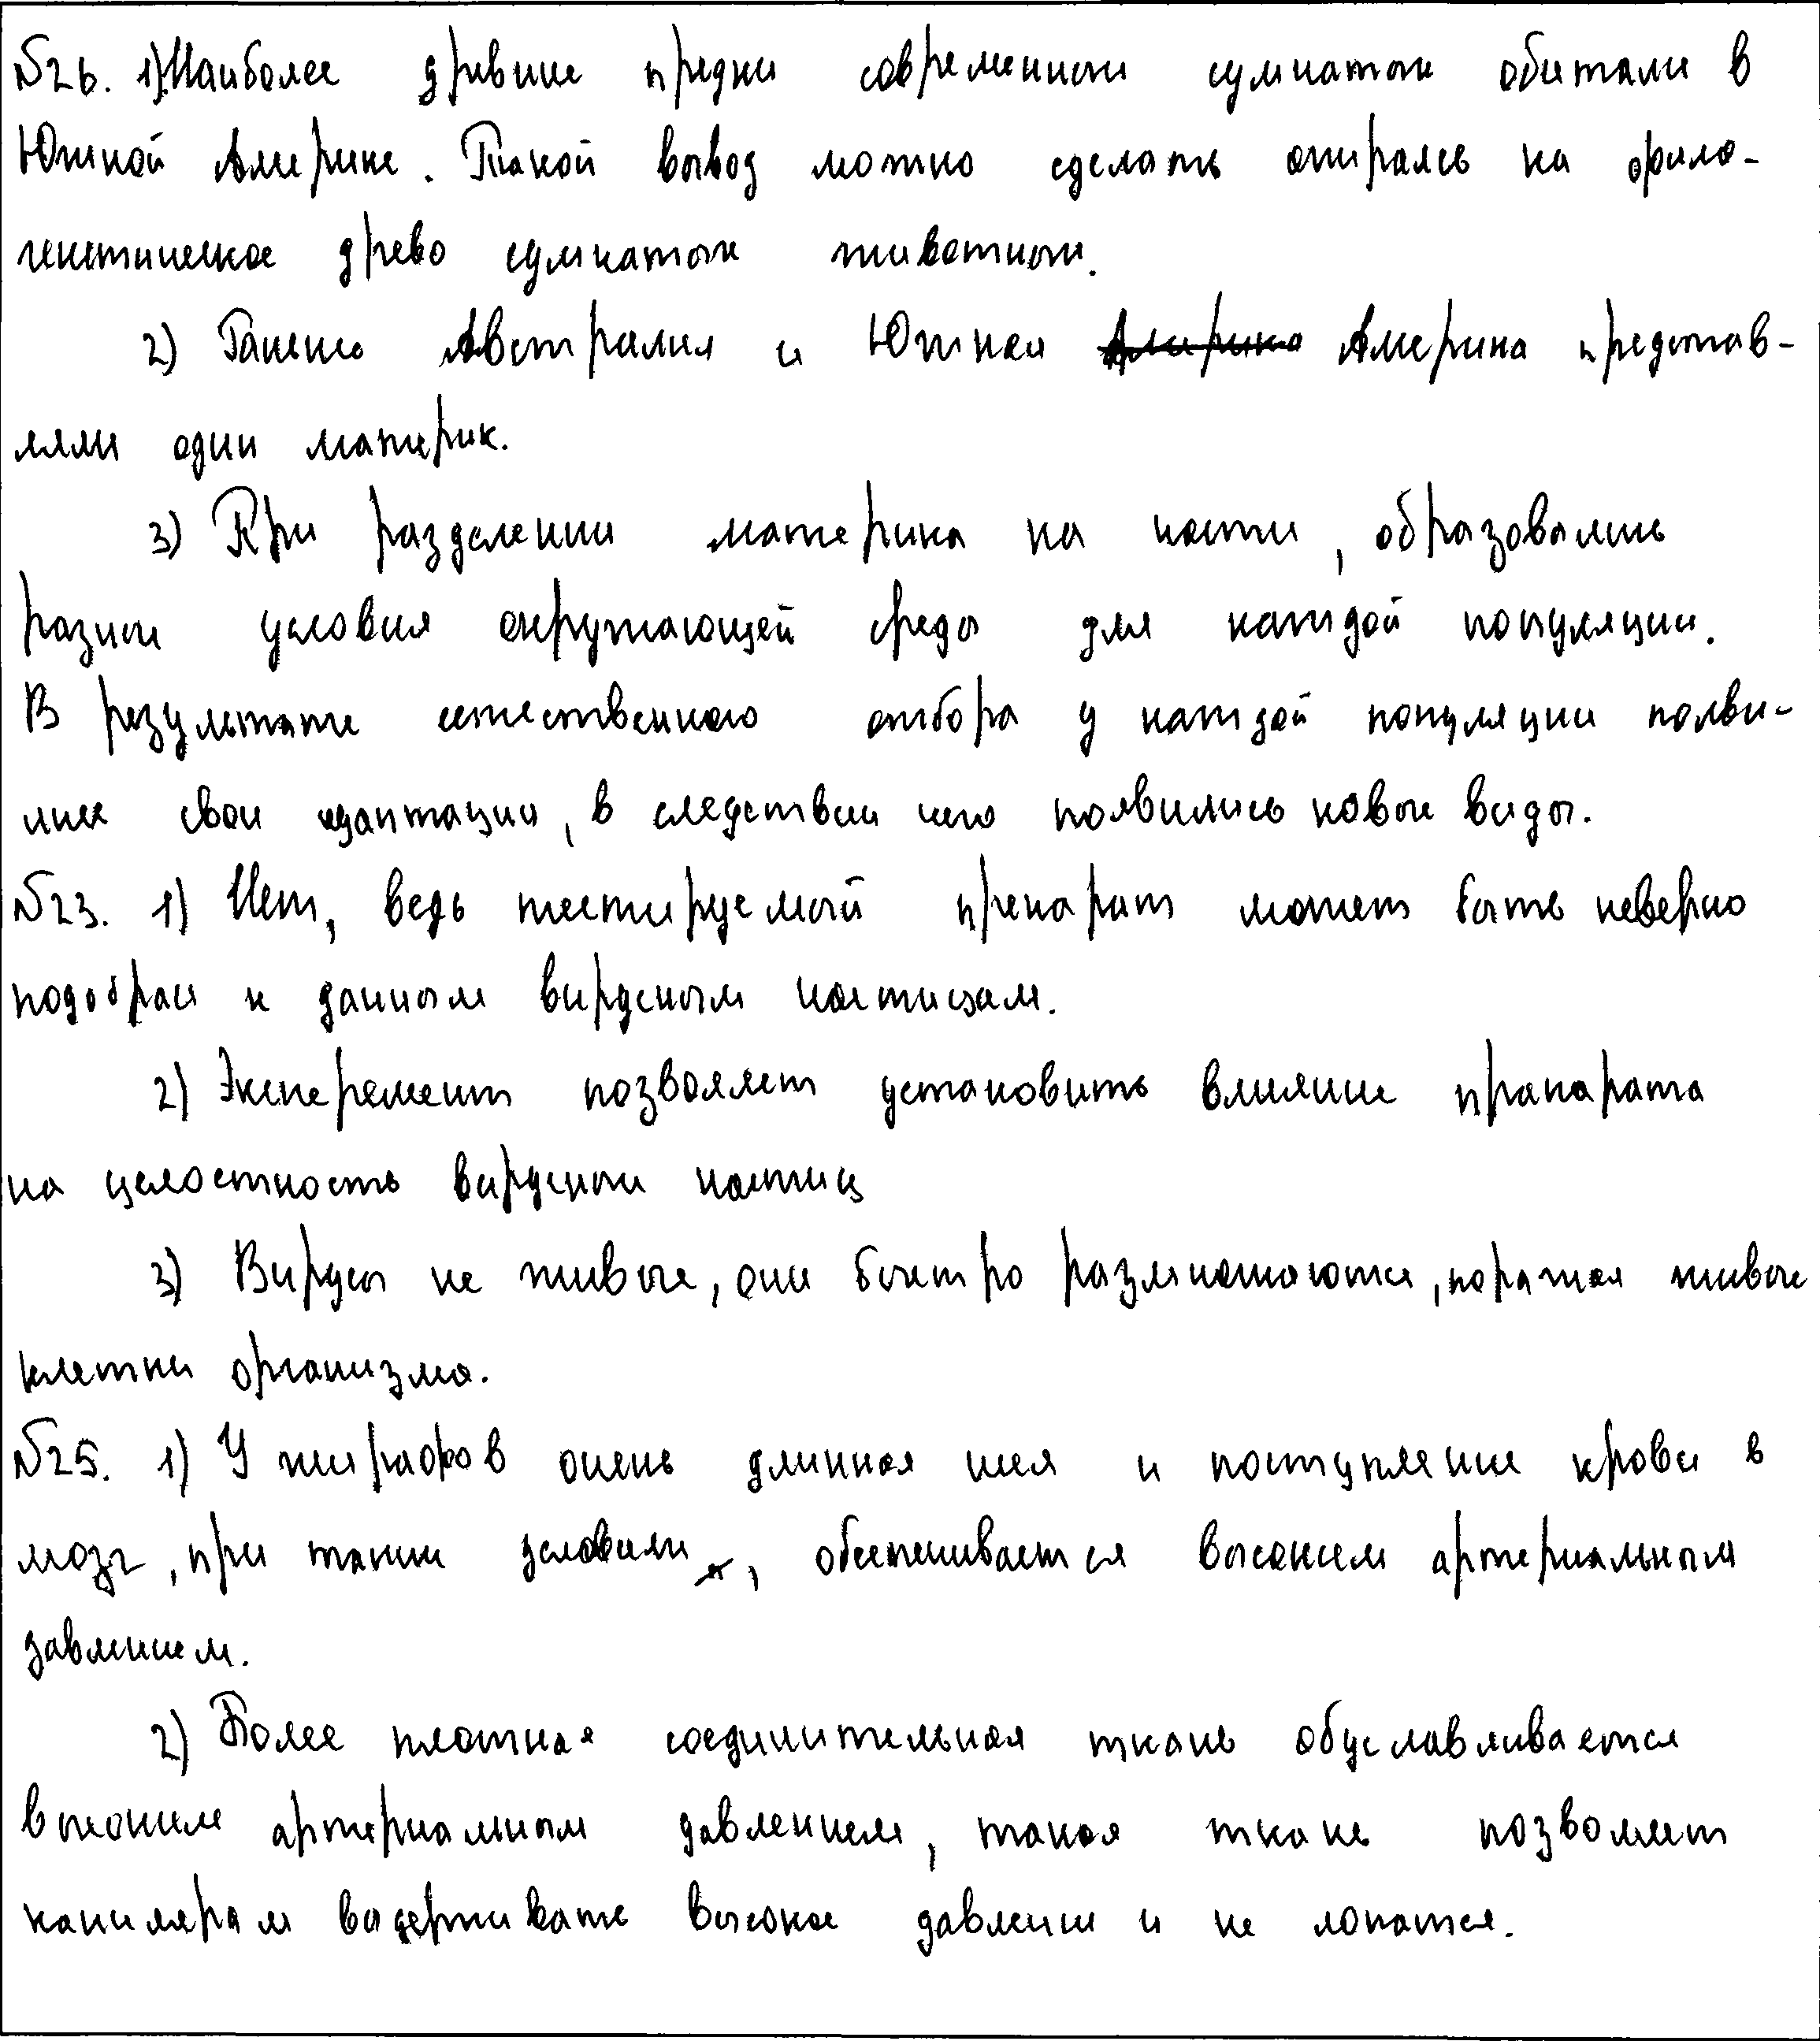 №26. 1) Наиболее древние предки современных сумчатых обитали в
Южной Америке. Такой вывод можно сделать опираясь на фило-
генетическое древо сумчатых животных.
2) Раньше Австралия и Южная Америка Америка представ-
ляли один материк.
3) При разделении материка на части, образовались
разные условия окружающей среды для каждой популяции.
В результате естественного отбора у каждой популяции появи-
лись свои адаптации, в следствии чего появились новые виды.
№23. 1) Нет, ведь тестируемый препарат может быть неверно
подобран к данным вирусным частицам.
2) Эксперемент позволяет установить влияние препарата
на целостность вирусных частиц
3) Вирусы не живые, они быстро размножаются, поражая живые
клетки организма.
№25. 1) У жирафов очень длинная шея и поступление крови в
мозг, при таких условиях, обеспечивается высоким артериальным
давлением.
2) Более плотная соединительная ткань обуславливается
высоким артериальным давлением, такая ткань позволяет
капилярам выдерживать высокое давление и не лопатся.